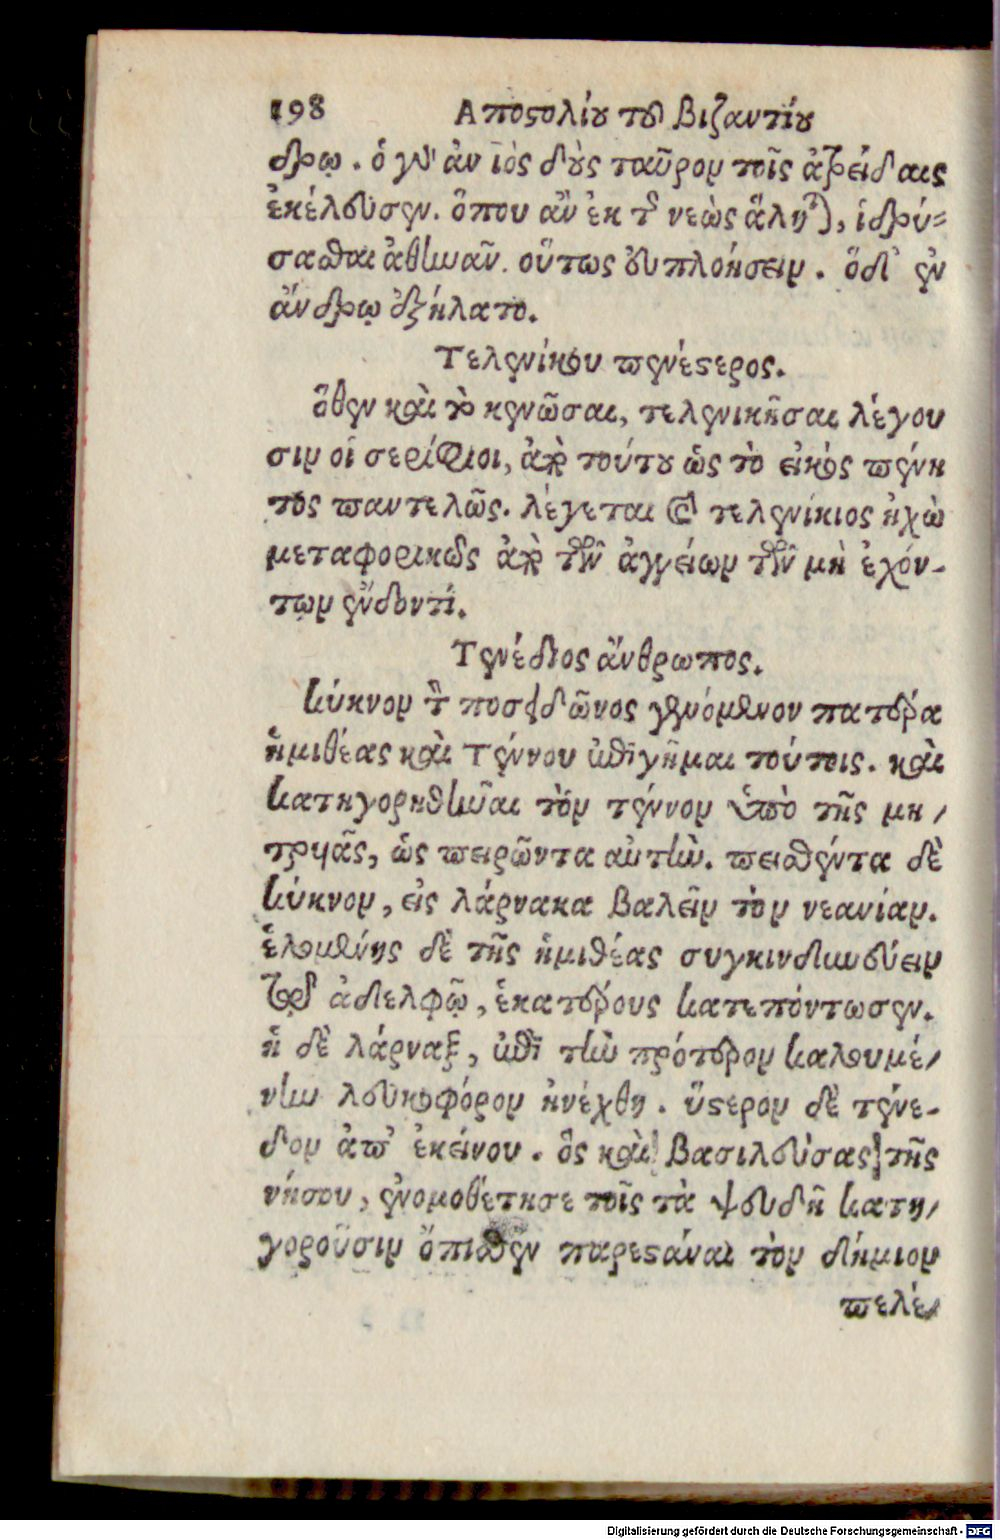 198 Αποστολίου τοῦ βιζαντίου
δρῳ. ὁ γοῦν ἀνιὸς δοὺς ταῦρον τοῖς ἀτρείδαις
ἐκέλευσεν. ὅπου ἂν ἐκ τῆς νεὼς ἅληται, ἱδρύ-
σασθαι ἀθηνᾶν. οὕτως εὐπλοήσειν. ὁ δ' ἐν
ἄνδρῳ ἐξήλατο.
Τελενίκου πενέστερος.
ὅθεν καὶ τὸ κενῶσαι, τελενικῆσαι λέγου
σιν οἱ σερίφιοι, ἀπὸ τούτου ὡς τὸ εἰκὸς πένη
τος παντελῶς. λέγεται καὶ τελενίκιος ἠχὼ
μεταφορικῶς ἀπὸ τῶν ἀγγείων τῶν μὴ ἐχόν-
των ἔνδον τί.
Τενέδιος ἄνθρωπος.
κύκνον τὸν ποσειδῶνος γενόμενον πατέρα
ἡμιθέας καὶ Τέννου ἐπιγῆμαι τούτοις. καὶ
κατηγορηθῆναι τὸν τέννον ὑπὸ τῆς μη/
τρυιᾶς, ὡς πειρῶντα αὐτὴν. πεισθέντα δὲ
κύκνον, εἰς λάρνακα βαλεῖν τὸν νεανίαν.
ἑλομένης δὲ τῆς ἡμιθέας συγκινδυνεύειν
τῷ ἀδελφῷ, ἑκατέρους κατεπόντωσεν.
ἡ δὲ λάρναξ, ἐπὶ τὴν πρότερον καλουμέ/
νην λευκοφόρον ἠνέχθη. ὕστερον δὲ τένε-
δον ἀπ' ἐκείνου. ὃς καὶ βασιλεύσας τῆς
νήσου, ἐνομοθέτησε τοῖς τὰ ψευδῆ κατη/
γοροῦσιν ὄπισθεν παρεστάναι τὸν δήμιον
πελέ/
Digitalisierung gefördert durch die Deutsche Forschungsgemeinschaft - DFG